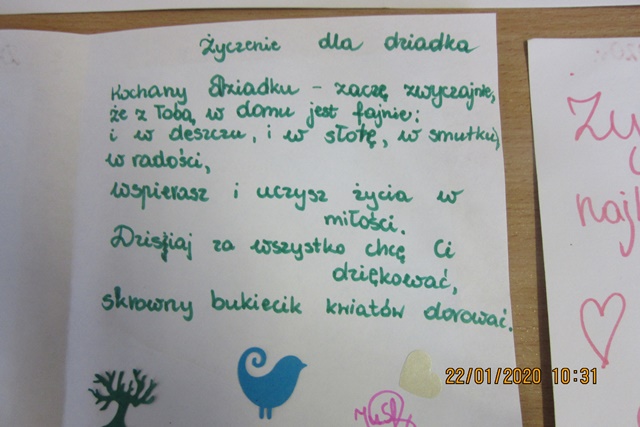 życzenie dla dziadka
Kochany Dziadku - zaczę zwyczajnie,
że z Tobą w domu jest fajnie:
i w deszczu, i w słotę, w smutku,
w radości,
wspierasz i uczysz życia w
miłości.
Dzisiaj za wszystko chcę Ci
dziękować,
skrowny bukiecik kwiatów dorować.
22/01/2020 10:31